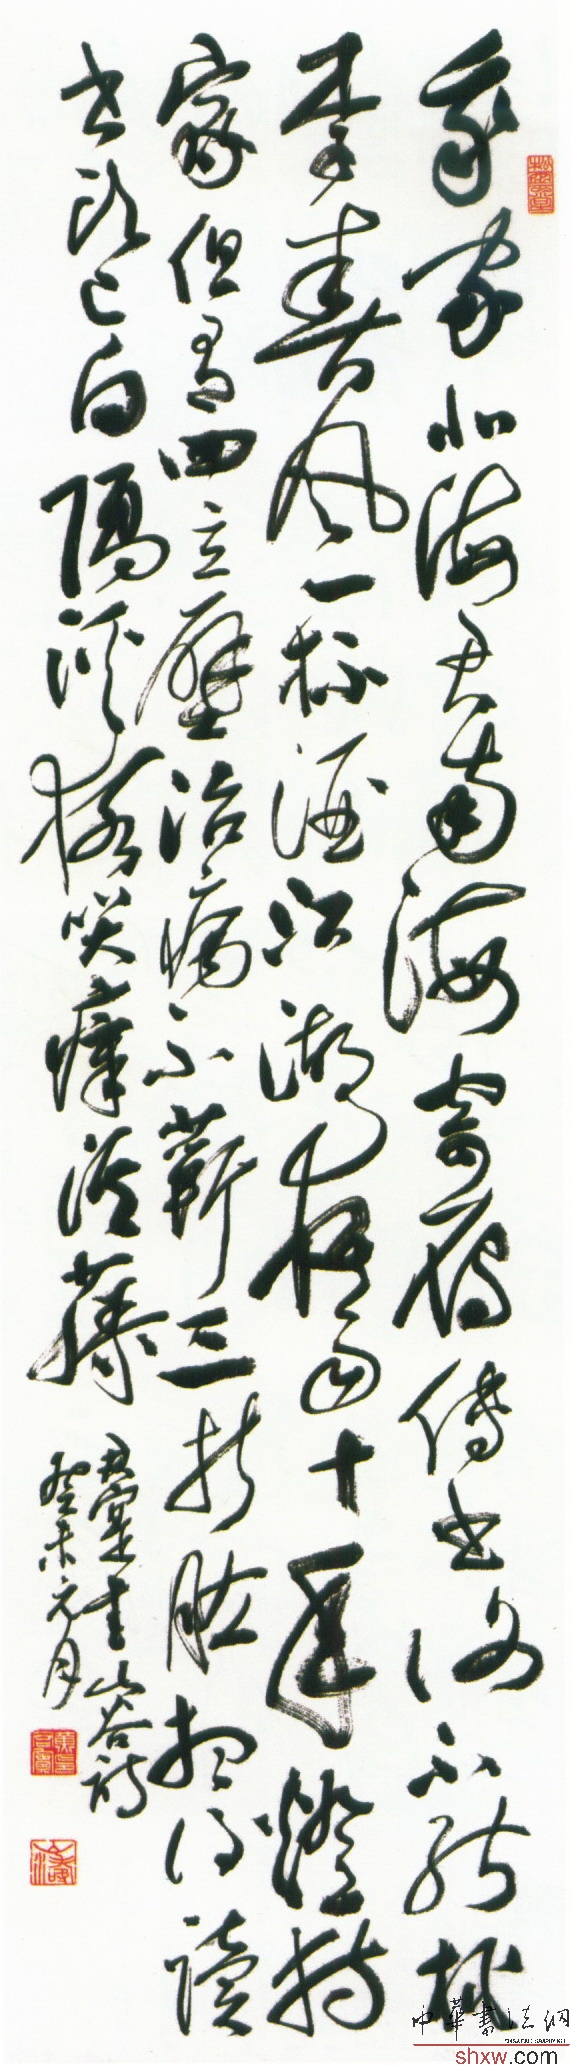 我家北海君南海寄雁傳書謝不能桃
李春風一杯酒江湖夜雨十年燈持
家但有四立壁治病不蘄三折肱想得讀
書頭已白隔溪猿哭瘴溪藤
君寔書山谷詩
癸未元月
中華書法網
shxw.com